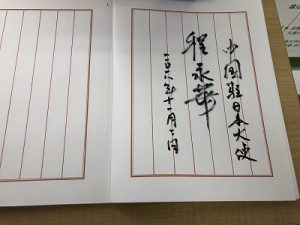 中国驻日本大使
程永華
二〇一八年十一月十二日